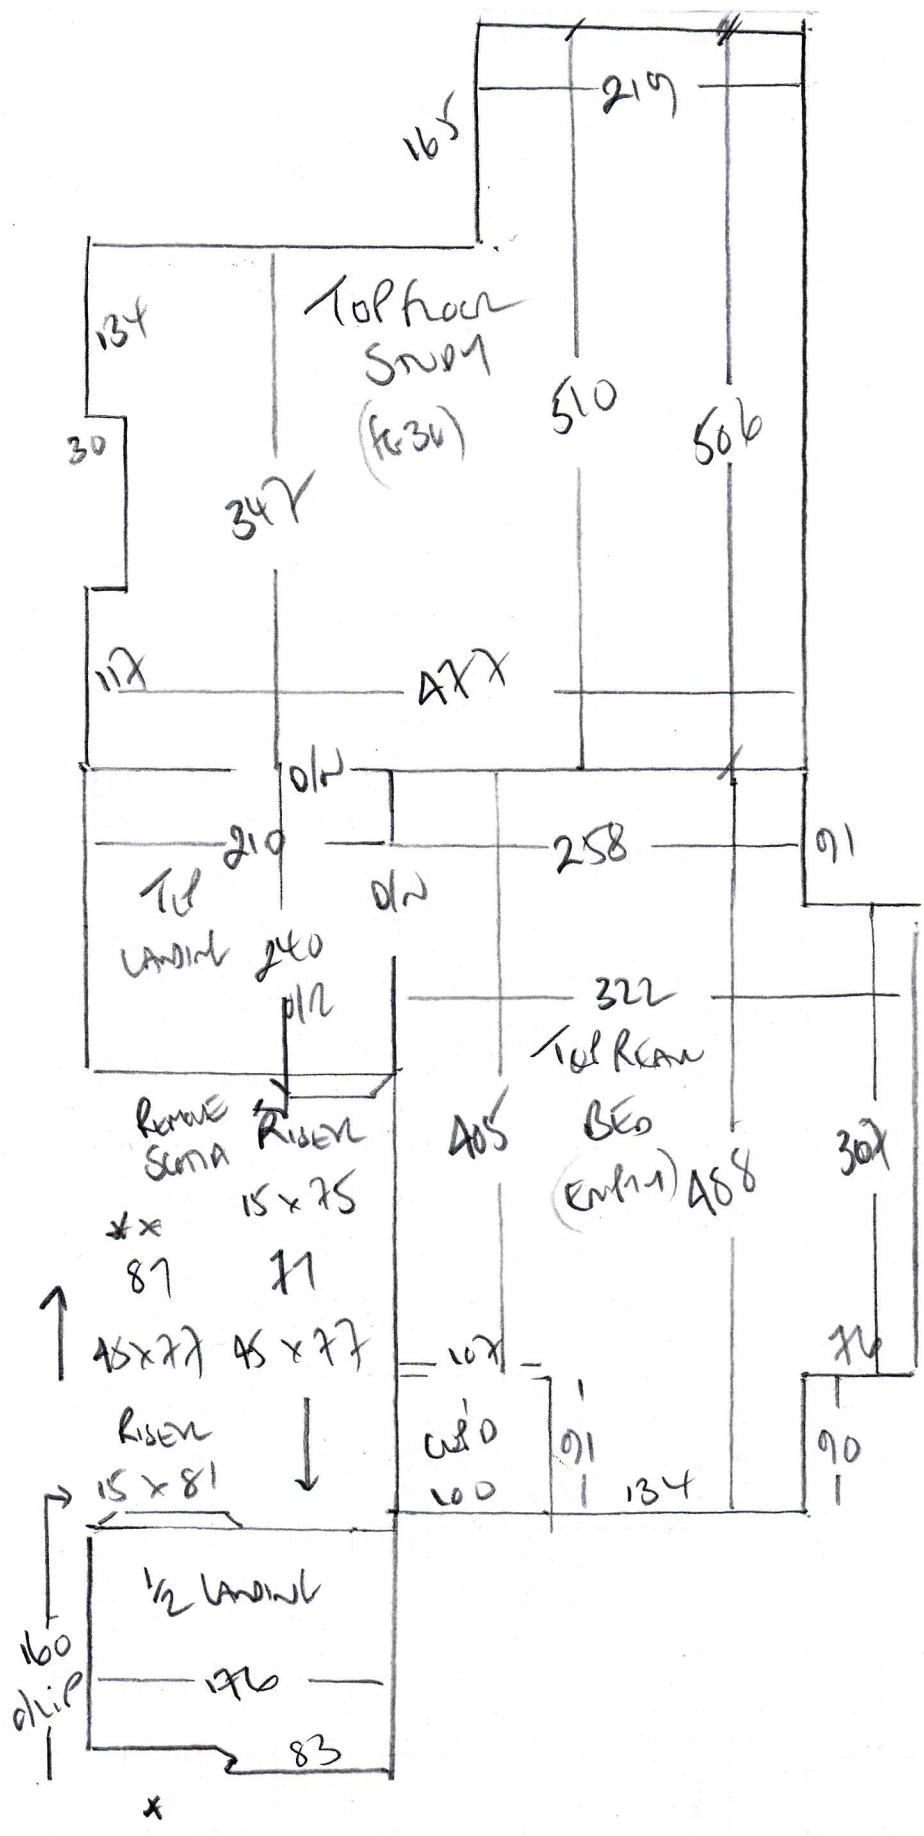 219
165
TOP FLOOR
STUDY
134
510
506
30
347
117
477
D/W
210
258
91
TOP
LANDING
D/W
240
D/R
322
TOP REAR
BED
(EMPTY)
405
488
307
REMOVE
SCOTIA
RISER
15 x 75
**
81
71
45 x 77
45 x 77
107
76
RISER
15 x 81
CUP'D
100
91
134
90
1/2 LANDING
160
O/LIP
176
83
*